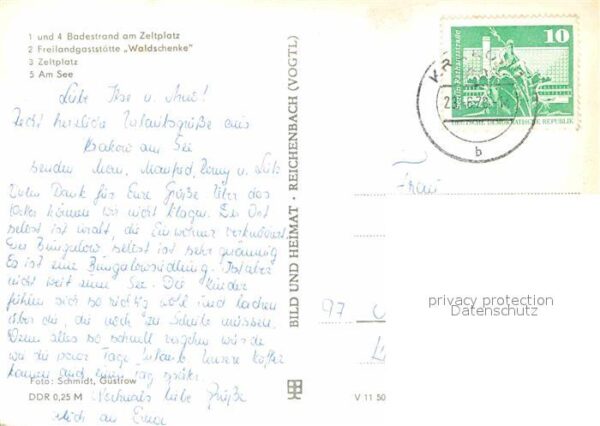 1 und 4 Badestrand am Zeltplatz
2 Freilandgaststätte „Waldschenke"
3 Zeltplatz
5 Am See
Liebe Ilse u.
Recht herzliche Urlaubsgrüße aus
Krakow am See
senden Manfred, u.
Vielen Dank für Eure Grüße. Über das
können wir nicht klagen. Der Ort
selbst ist uralt, die Einwohner
Der Bungalow selbst ist sehr geräumig
Es ist eine Bungalowsiedlung. Ist aber
nicht weit vom See. Die Kinder
fühlen sich so richtig wohl und lachen
über die, die noch zur Schule müssen.
Wenn alles so schnell vergehen würde
wie die paar Tage Urlaub. Unsere Koffer
kamen auch einen Tag später.
Foto: Schmidt, Güstrow
DDR 0,25 M
Nochmals liebe Grüße
BILD UND HEIMAT · REICHENBACH (VOGTL)
V 11 50
10
Berlin-Rathausstraße
DEUTSCHE DEMOKRATISCHE REPUBLIK
b
Frau
97
privacy protection
Datenschutz